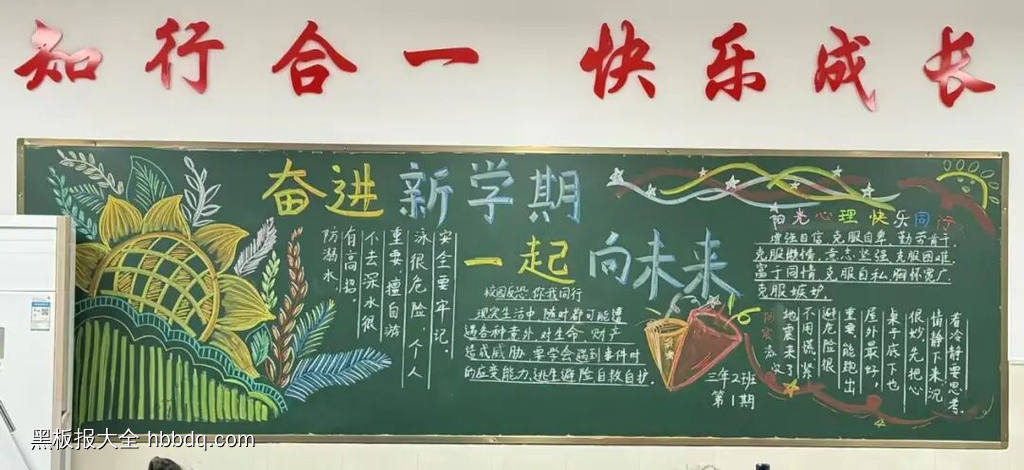 知行合一 快乐成长
奋进新学期
一起向未来
防溺水
安全要牢记，
泳很危险，人人
重要，擅自游
不去深水很
有高招。
校园反恐 你我同行
现实生活中，随时都可能遭
遇各种意外，对生命、财产
造成威胁，要学会遇到事件时
的应变能力、逃生避险自救自护.
三年2班
第1期
阳光心理 快乐同行
增强自信 克服自卑 勤苦肯干,
克服懒惰, 意志坚强 克服困难
富于同情, 克服自私, 胸怀宽广,
克服嫉妒.
地震来了
不用慌，紧
避危险很
重要，能跑出
屋外最好，
桌子底下也
很妙，先把心
情静下来，沉
着冷静要思考.
黑板报大全 hbbdq.com